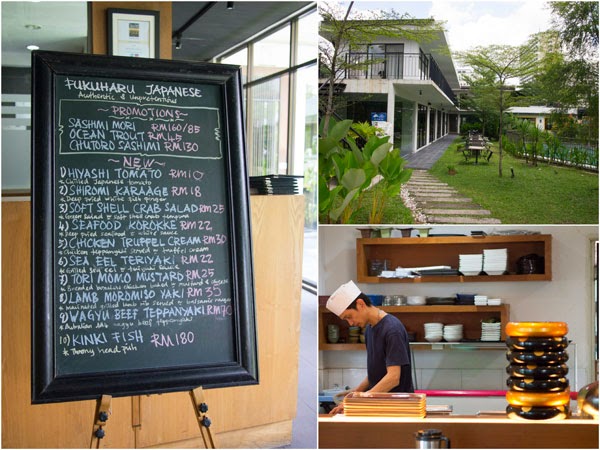 FUKUHARU JAPANESE
Authentic & Unpretentious
PROMOTIONS
SASHIMI MORI RM160/85
OCEAN TROUT RM45
CHUTORO SASHIMI RM130
NEW
1) HIYASHI TOMATO RM10
* Chilled Japanese tomato
2) SHIROMI KARAAGE RM18
* Deep fried white fish
3) SOFT SHELL CRAB SALAD RM25
* Green salad & soft shell crab tempura
4) SEAFOOD KOROKKE RM22
* Deep fried seafood & white sauce
5) CHICKEN TRUFFEL CREAM RM30
* Chicken teppanyaki served & truffel cream
6) SEA EEL TERIYAKI RM22
* Grilled sea eel & teriyaki sauce
7) TORI MOMO MUSTARD RM25
chicken mustard
8) LAMB MOROMISO YAKI RM35
9) WAGYU BEEF TEPPANYAKI RM70
* Australian wagyu beef teppanyaki
10) KINKI FISH RM180
* Thorny head fish